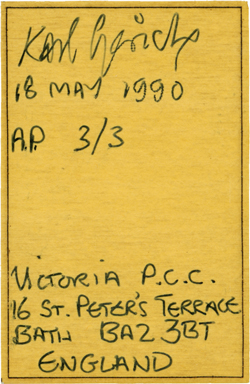 Karl Gerich
18 MAY 1990
A.P. 3/3
VICTORIA P.C.C.
16 ST. PETER'S TERRACE
BATH BA2 3BT
ENGLAND